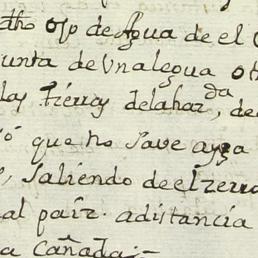 dho ojo de Agua de el
unta de Una legua ot
las tierras de la haz.da, de
ó que no save aya
, Saliendo de el zerr
al pais. a distancia
a Cañada;-